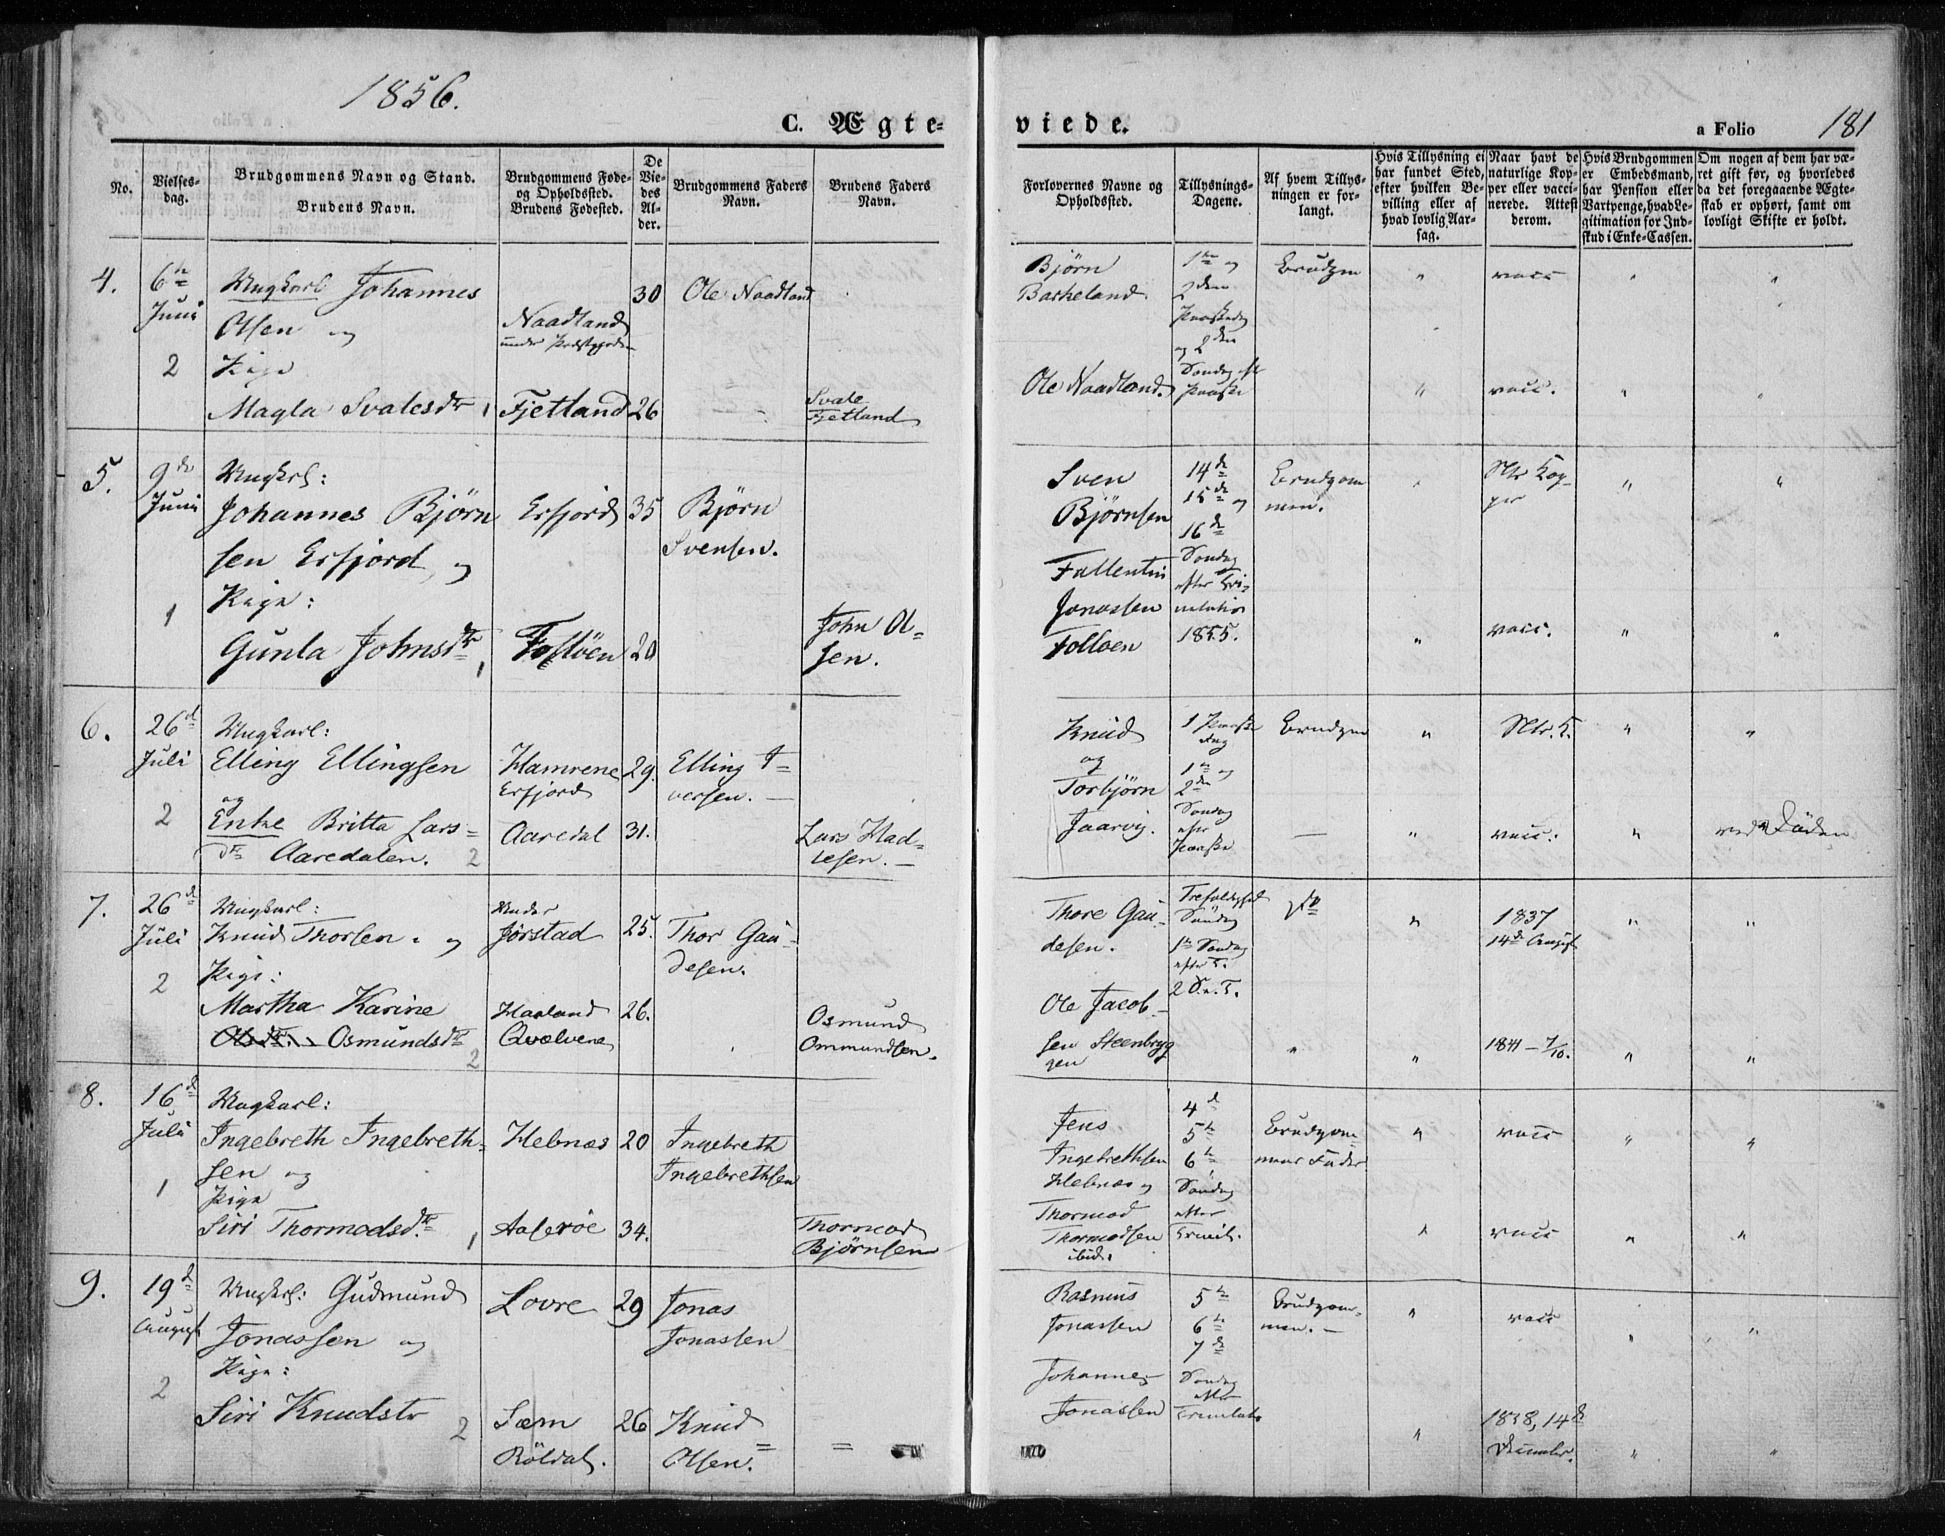 1856.
C. Ægte-
viede.
a Folio 181
No.
Vielses-
dag.
Brudgommens Navn og Stand.
Brudens Navn.
Brudgommens Føde-
og Opholdssted.
Brudens Fødested.
De
Vie-
des
Al-
der.
Brudgommens Faders
Navn.
Brudens Faders
Navn.
Forlovernes Navne og
Opholdssted.
Tillysnings-
Dagene.
Af hvem Tillys-
ningen er for-
langt.
Hvis Tillysning ei
har fundet Sted,
efter hvilken Be-
villing eller af
hvad lovlig Aar-
sag.
Naar havt de
naturlige Kop-
per eller vacci-
nerede. Attest
derom.
Hvis Brudgommen
er Embedsmand,
har Pension eller
Vartpenge, hvad Le-
gitimation for Ind-
skud i Enke-Cassen.
Om nogen af dem har væ-
ret gift før, og hvorledes
da det foregaaende Ægte-
skab er ophørt, samt om
lovligt Skifte er holdt.
4.
6te
Juni
2
Ungkarl Johannes
Olsen og
Pige
Magla Svalesdtr 1
Naadland
under Præstegjeld
Fjetland
30
26
Ole Naadland
Svale
Fjetland
Bjørn
Barkeland.
Ole Naadland.
1ste og
2den
Paaskedag
og 2den
Søndag eft
Paaske
Brudgm
vacc
vacc.
5.
9de
Juni
1
Ungkrl:
Johannes Bjørn
sen Erfjord, og
Pige:
Gunla Johnsdtr 1
Erfjord
35
20
Bjørn
Svensen.
John Ol-
sen.
Sven
Bjørnsen
Fallentin
Jonassen
Folloen
14de
15de og
16de
Søndag
efter Tri-
nitatis
1855.
Brudgom
men.
Ntr Kop-
per
vacc.
6.
26d
Juli
2
Ungkarl:
Elling Ellingsen
og
Enke Britta Lars=
dtr Aaredalen. 2
Hamrene
Erfjord
Aaredal
29.
31.
Elling I=
versen. —
Lars Had=
lesen. —
Knud
og
Torbjørn
Jaarvig.
1 Paaske
dag
1ste og
2den
Søndag
efter
Paaske
Brudgm
—
Ntr. K.
vacc:
ved Døden
7.
26d
Juli
2
Ungkarl:
Knud Thorsen. og
Pige:
Martha Karine
Olsdtr. Osmundsdtr 2
Under
Jørstad
Haaland
Qvælvene
25.
26.
Thor Gau-
desen.
Osmund
Ommundsen.
Thore Gau-
desen.
Ole Jacob-
sen Steenbryg
gen
Søndag
1ste Søndag
efter T.
2 S. e. T.
1837
14de August
1841 – 7/10.
8.
16d
Juli
1
Ungkarl:
Ingebreth Ingebreth-
sen og
Pige
Siri Thormodsdtr. 1
Hebnæs
20
34.
Ingebreth
Ingebrethsen
Thormod
Bjørnsen
Jens
Ingebrethsen
Hebnæs og
Thormod
Thormodsen
ibid.
4d
5te
6te
Søndag
efter
Trinit.
Brudgom
mens Fader
vacc
vacc
9.
19d
August
2
Ungkrl: Gudmund
Jonassen og
Pige:
Siri Knudsdtr 2
Lovre
Sæm
Röldal.
29
26
Jonas
Jonassen
Knud
Olsen.
Rasmus
Jonassen
Johannes
Jonassen
5te
6te
7de
Søndag
efter
Trinitatis
Brudgom-
men. —
vacc
1838, 14d
December.